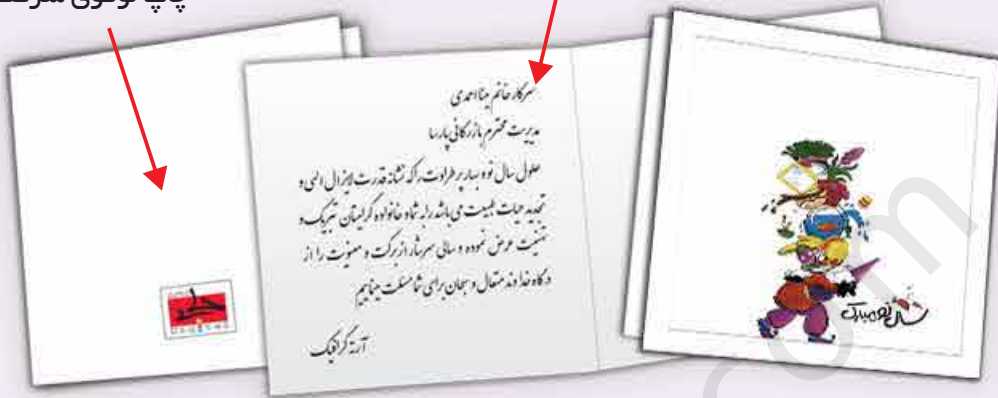 چاپ لوگوی شرکت
سرکار خانم مینا احمدی
مدیریت محترم بازرگانی پارسا
حلول سال نو و بهار پر طراوت را که نشانه قدرت لایزال الهی و
تجدید حیات طبیعت می باشد را به شما و خانواده گرامیتان تبریک و
تهنیت عرض نموده و سالی سرشار از برکت و معنویت را از
درگاه خداوند متعال و سبحان برای شما مسئلت می نماییم
آرته گرافیک
سال نو مبارک
com